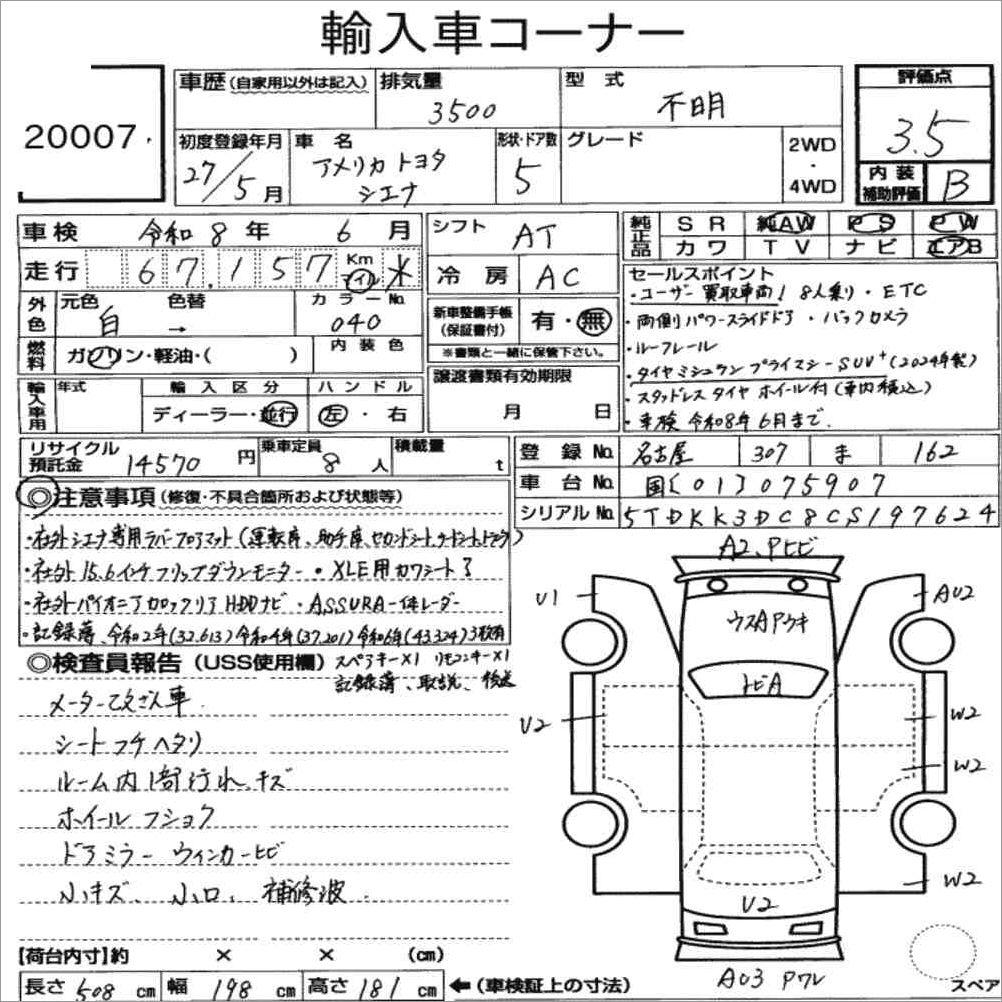 輸入車コーナー
20007
車歴(自家用以外は記入) 排気量 3500 型式 不明
評価点 3.5
初度登録年月 27/5月 車名 アメリカトヨタ シエナ 形状・ドア数 5 グレード 2WD・4WD
内装補助評価 B
車検 令和8年 6月 シフト AT
純正品 SR 純AW PS PW
カワ TV ナビ エアB
走行 67,157 Km マイル * 冷房 AC
外色 元色 白 色替 → カラーNo. 040
新車整備手帳(保証書付) 有・無
※書類と一緒に保管下さい。
燃料 ガソリン・軽油・( ) 内装色
輸入車用 年式 輸入区分 ディーラー・並行 ハンドル 左・右
譲渡書類有効期限 月 日
セールスポイント
・ユーザー買取車両! 8人乗り・ETC
・両側パワースライドドア・バックカメラ
・ルーフレール
・タイヤミシュラン プライマシーSUV+(2024年製)
・スタッドレスタイヤ ホイール付(車内積込)
・車検 令和8年6月まで.
リサイクル預託金 14570円 乗車定員 8人 積載量 t
登録No. 名古屋 307 ま 162
車台No. 国[01]075907
シリアルNo. 5TDKK3DC8CS197624
◎注意事項(修復・不具合箇所および状態等)
・社外シエナ専用ラバーフロアマット(運転席、助手席、セカンドシート、サードシート、トランク)
・社外15.6インチフリップダウンモニター・XLE用カワシート
・社外パイオニアカロッツェリアHDDナビ・ASSURA一体レーダー
・記録簿、令和2年(32,613)令和4年(37,201)令和6年(43,324)3枚有
スペアキー×1 リモコンキー×1
記録簿、取説、後送
◎検査員報告(USS使用欄)
メーター改ざん車
シートフチヘタリ
ルーム内1部汚れ、キズ
ホイールフショク
ドアミラーウィンカーヒビ
小キズ、小凹、補修波
A2、Pヒビ
U1
A02
ウスAPウキ
トビA
U2
W2
W2
W2
U2
A03 Pワレ
【荷台内寸】約 × × (cm)
長さ 508 cm 幅 198 cm 高さ 181 cm ←(車検証上の寸法)
スペア